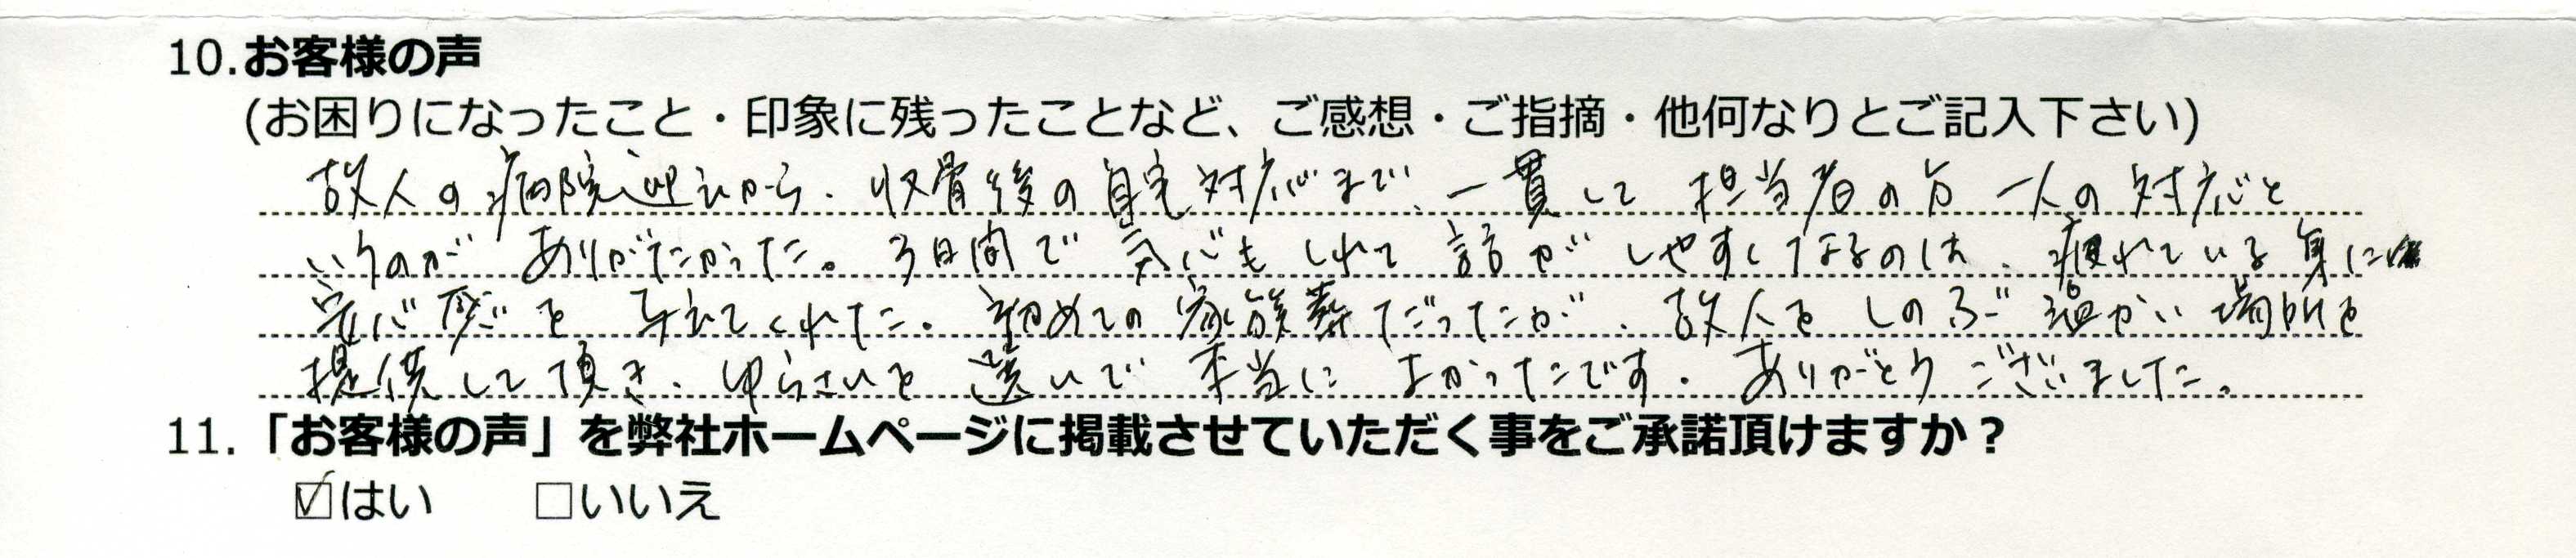 10.お客様の声
(お困りになったこと・印象に残ったことなど、ご感想・ご指摘・他何なりとご記入下さい)
故人の病院迎えから、収骨後の自宅対応まで、一貫して 担当者の方 一人の対応と
いうのが ありがたかった。3日間で 気心もしれて 話が しやすくなるのは、疲れている身に
安心感を 与えてくれた。初めての 家族葬だったが、故人を しのぶ 温かい 場所を
提供して頂き、ゆらさいを 選んで 本当に よかったです。ありがとう ございました。
11.「お客様の声」を弊社ホームページに掲載させていただく事をご承諾頂けますか？
☑はい □いいえ